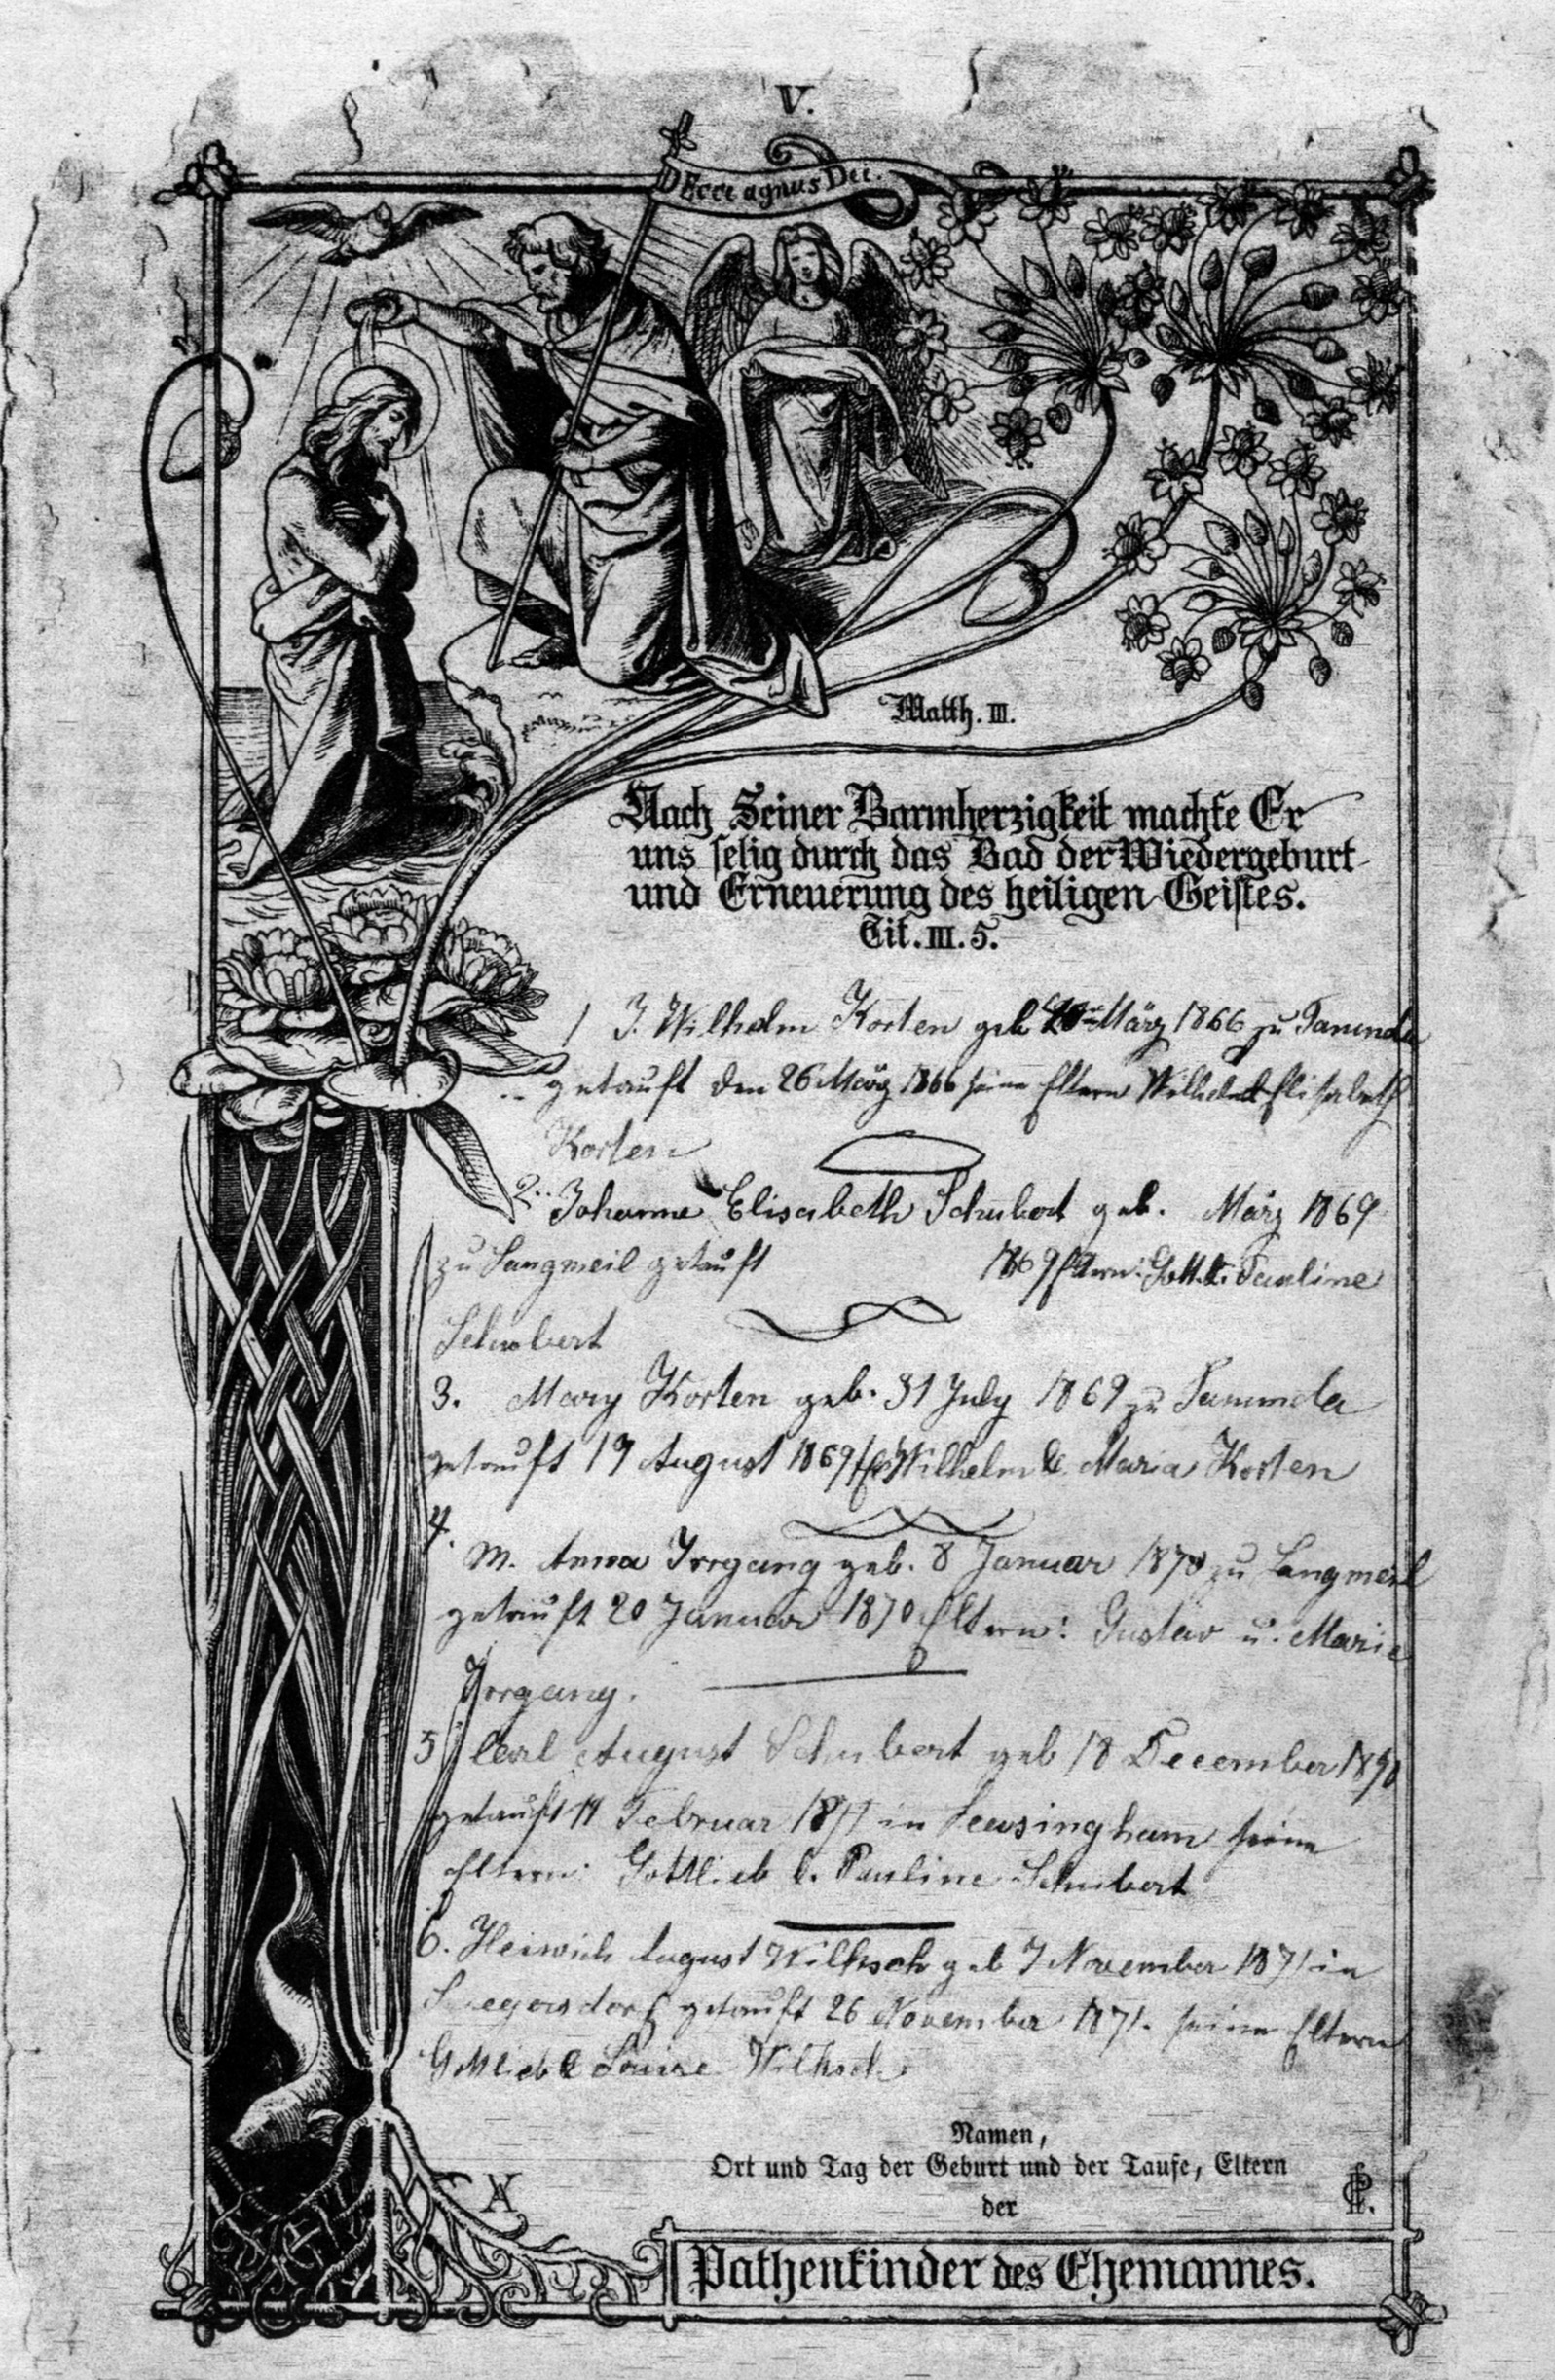 V.
Ecce agnus Dei.
Matth. III.
Nach Seiner Barmherzigkeit machte Er
uns selig durch das Bad der Wiedergeburt
und Erneuerung des heiligen Geistes.
Tit. III. 5.
1 J. Wilhelm Korten geb März 1866 zu Tanunda
getauft den 26 März 1866 seine Eltern Wilhelm & Elisabeth
Korten
2.. Johanne Elisabeth Schubert geb. März 1869
zu Langmeil getauft 1869 Eltern: Gottl. & Pauline
Schubert
3. Mary Korten geb. 31 July 1869 zu Tanunda
getauft 19 August 1869 Wilhelm & Maria Korten
4.
M. Anna Irrgang geb. 8 Januar 1870 zu Langmeil
getauft 20 Januar 1870 Eltern: Gustav u. Marie
Irrgang.
5 Carl August Schubert geb 18 December
getauft Februar in seine
Eltern: Gottlieb & Pauline Schubert
6. Heinrich August Wilksch geb 7 November 1871 in
getauft 26 November 1871. seine Eltern
Gottlieb & Louise Wilksch
Namen,
Ort und Tag der Geburt und der Taufe, Eltern
der
Pathenkinder des Ehemannes.